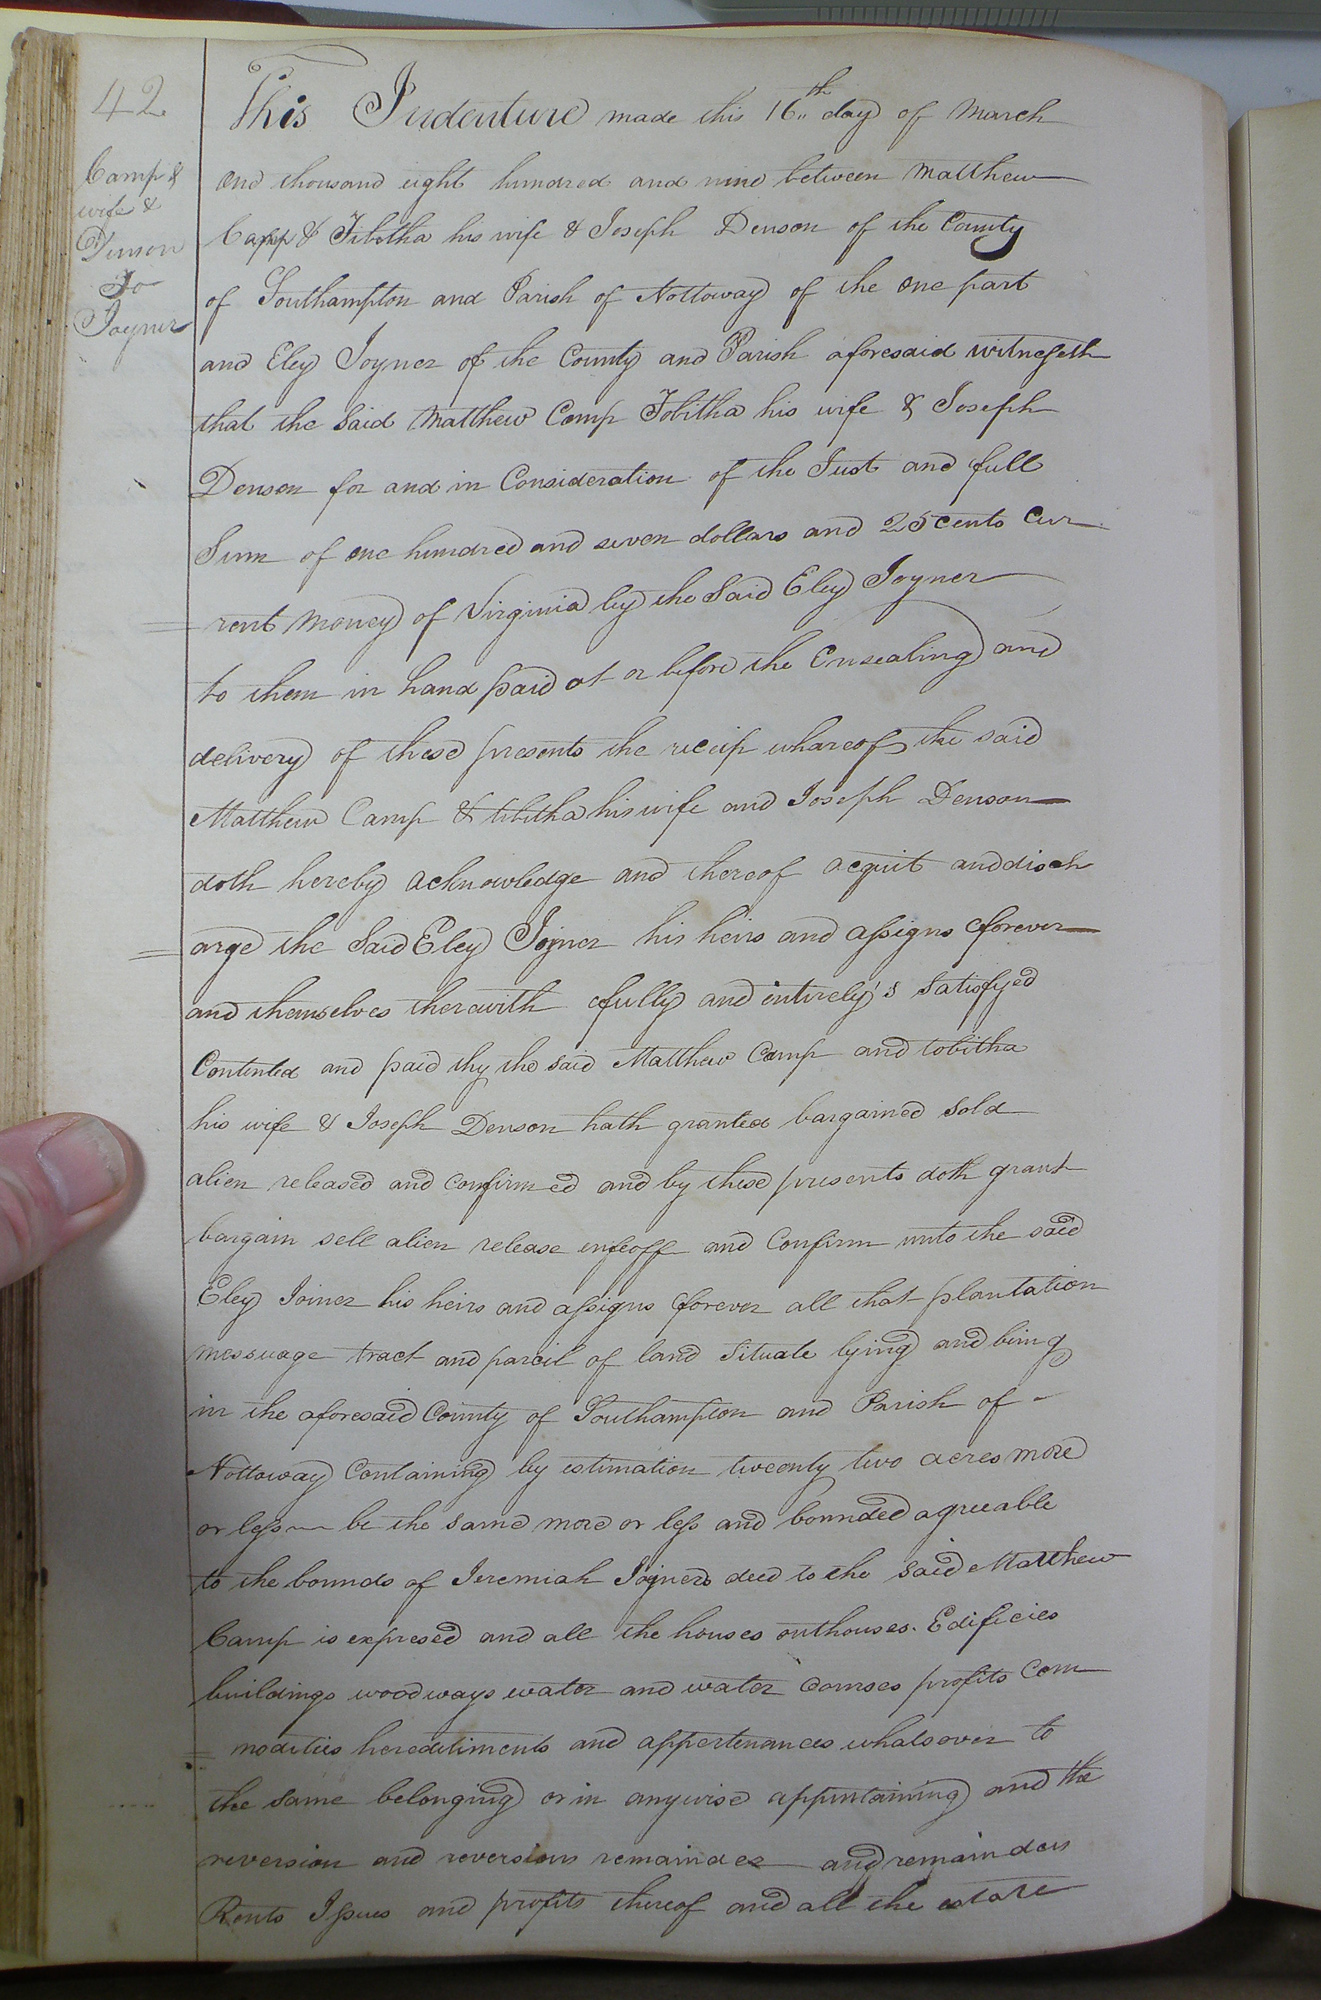 42
Camp &
wife &
Denson
To
Joyner
This Indenture made this 16th day of March
one thousand eight hundred and nine between Matthew
Camp & Tibitha his wife & Joseph Denson of the County
of Southampton and Parish of Nottoway of the one part
and Eley Joyner of the County and Parish aforesaid witnesseth
that the said Matthew Camp Tobitha his wife & Joseph
Denson for and in Consideration of the Just and full
Sum of one hundred and seven dollars and 25 cents Cur
= rent money of Virginia by the Said Eley Joyner
to them in hand paid at or before the Ensealing and
delivery of these presents the receip whareof the said
Matthew Camp & tibitha his wife and Joseph Denson
doth hereby acknowledge and thereof acquit and disch
= arge the Said Eley Joyner his heirs and assigns forever
and themselves therewith fully and intirely's satisfyed
Contented and paid thy the said Matthew Camp and tobitha
his wife & Joseph Denson hath granted bargained sold
alien released and confirmed and by these presents doth grant
bargain sell alien release infeoff and Confirm unto the said
Eley Joiner his heirs and assigns forever all that plantation
messuage tract and parcil of land situate lying and being
in the aforesaid County of Southampton and Parish of
Nottoway Containing by estimation tweonty two acres more
or less be the same more or less and bounded agreeable
to the bounds of Jeremiah Joyners deed to the said Matthew
Camp is expresed and all the houses outhouses. Edificies
buildings woodways water and water courses profits com
= modities heredetiments and appertenances whatsover to
the same belonging or in anywise appertaining and the
reversion and reversions remainder and remainders
Rents Issues and profits thereof and all the estate